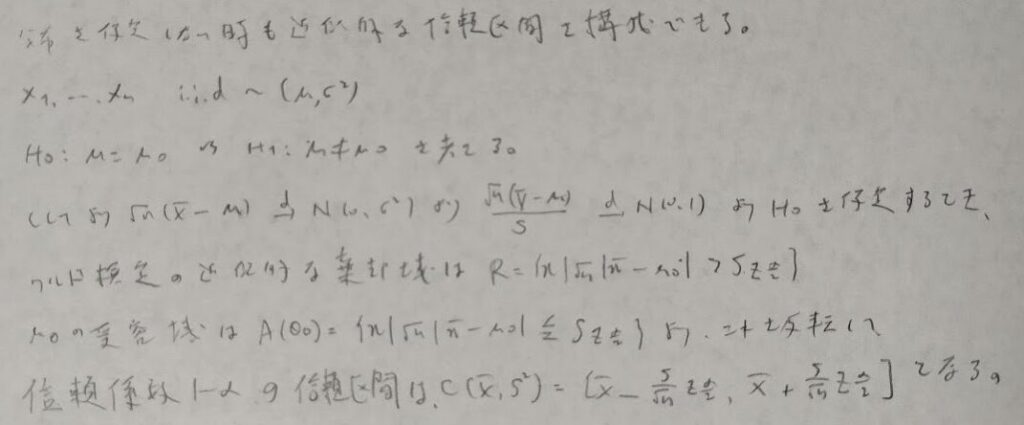 分布を仮定しない時も近似的な信頼区間を構成できる。
X₁, …, Xₙ i.i.d ~ (μ, σ²)
H₀: μ = μ₀ vs H₁: μ ≠ μ₀ を考える。
CLTより √n(X̄ − μ) →d N(0, σ²) より √n(X̄ − μ₀)/S →d N(0, 1) より H₀を仮定すると、
ワルド検定の近似的な棄却域は R = {x | √n|x̄ − μ₀| > S z_{α/2}}
μ₀の受容域は A(θ₀) = {x | √n|x̄ − μ₀| ≤ S z_{α/2}} より、これを反転して
信頼係数 1−α の信頼区間は、C(X̄, S²) = [X̄ − S/√n z_{α/2}, X̄ + S/√n z_{α/2}] となる。